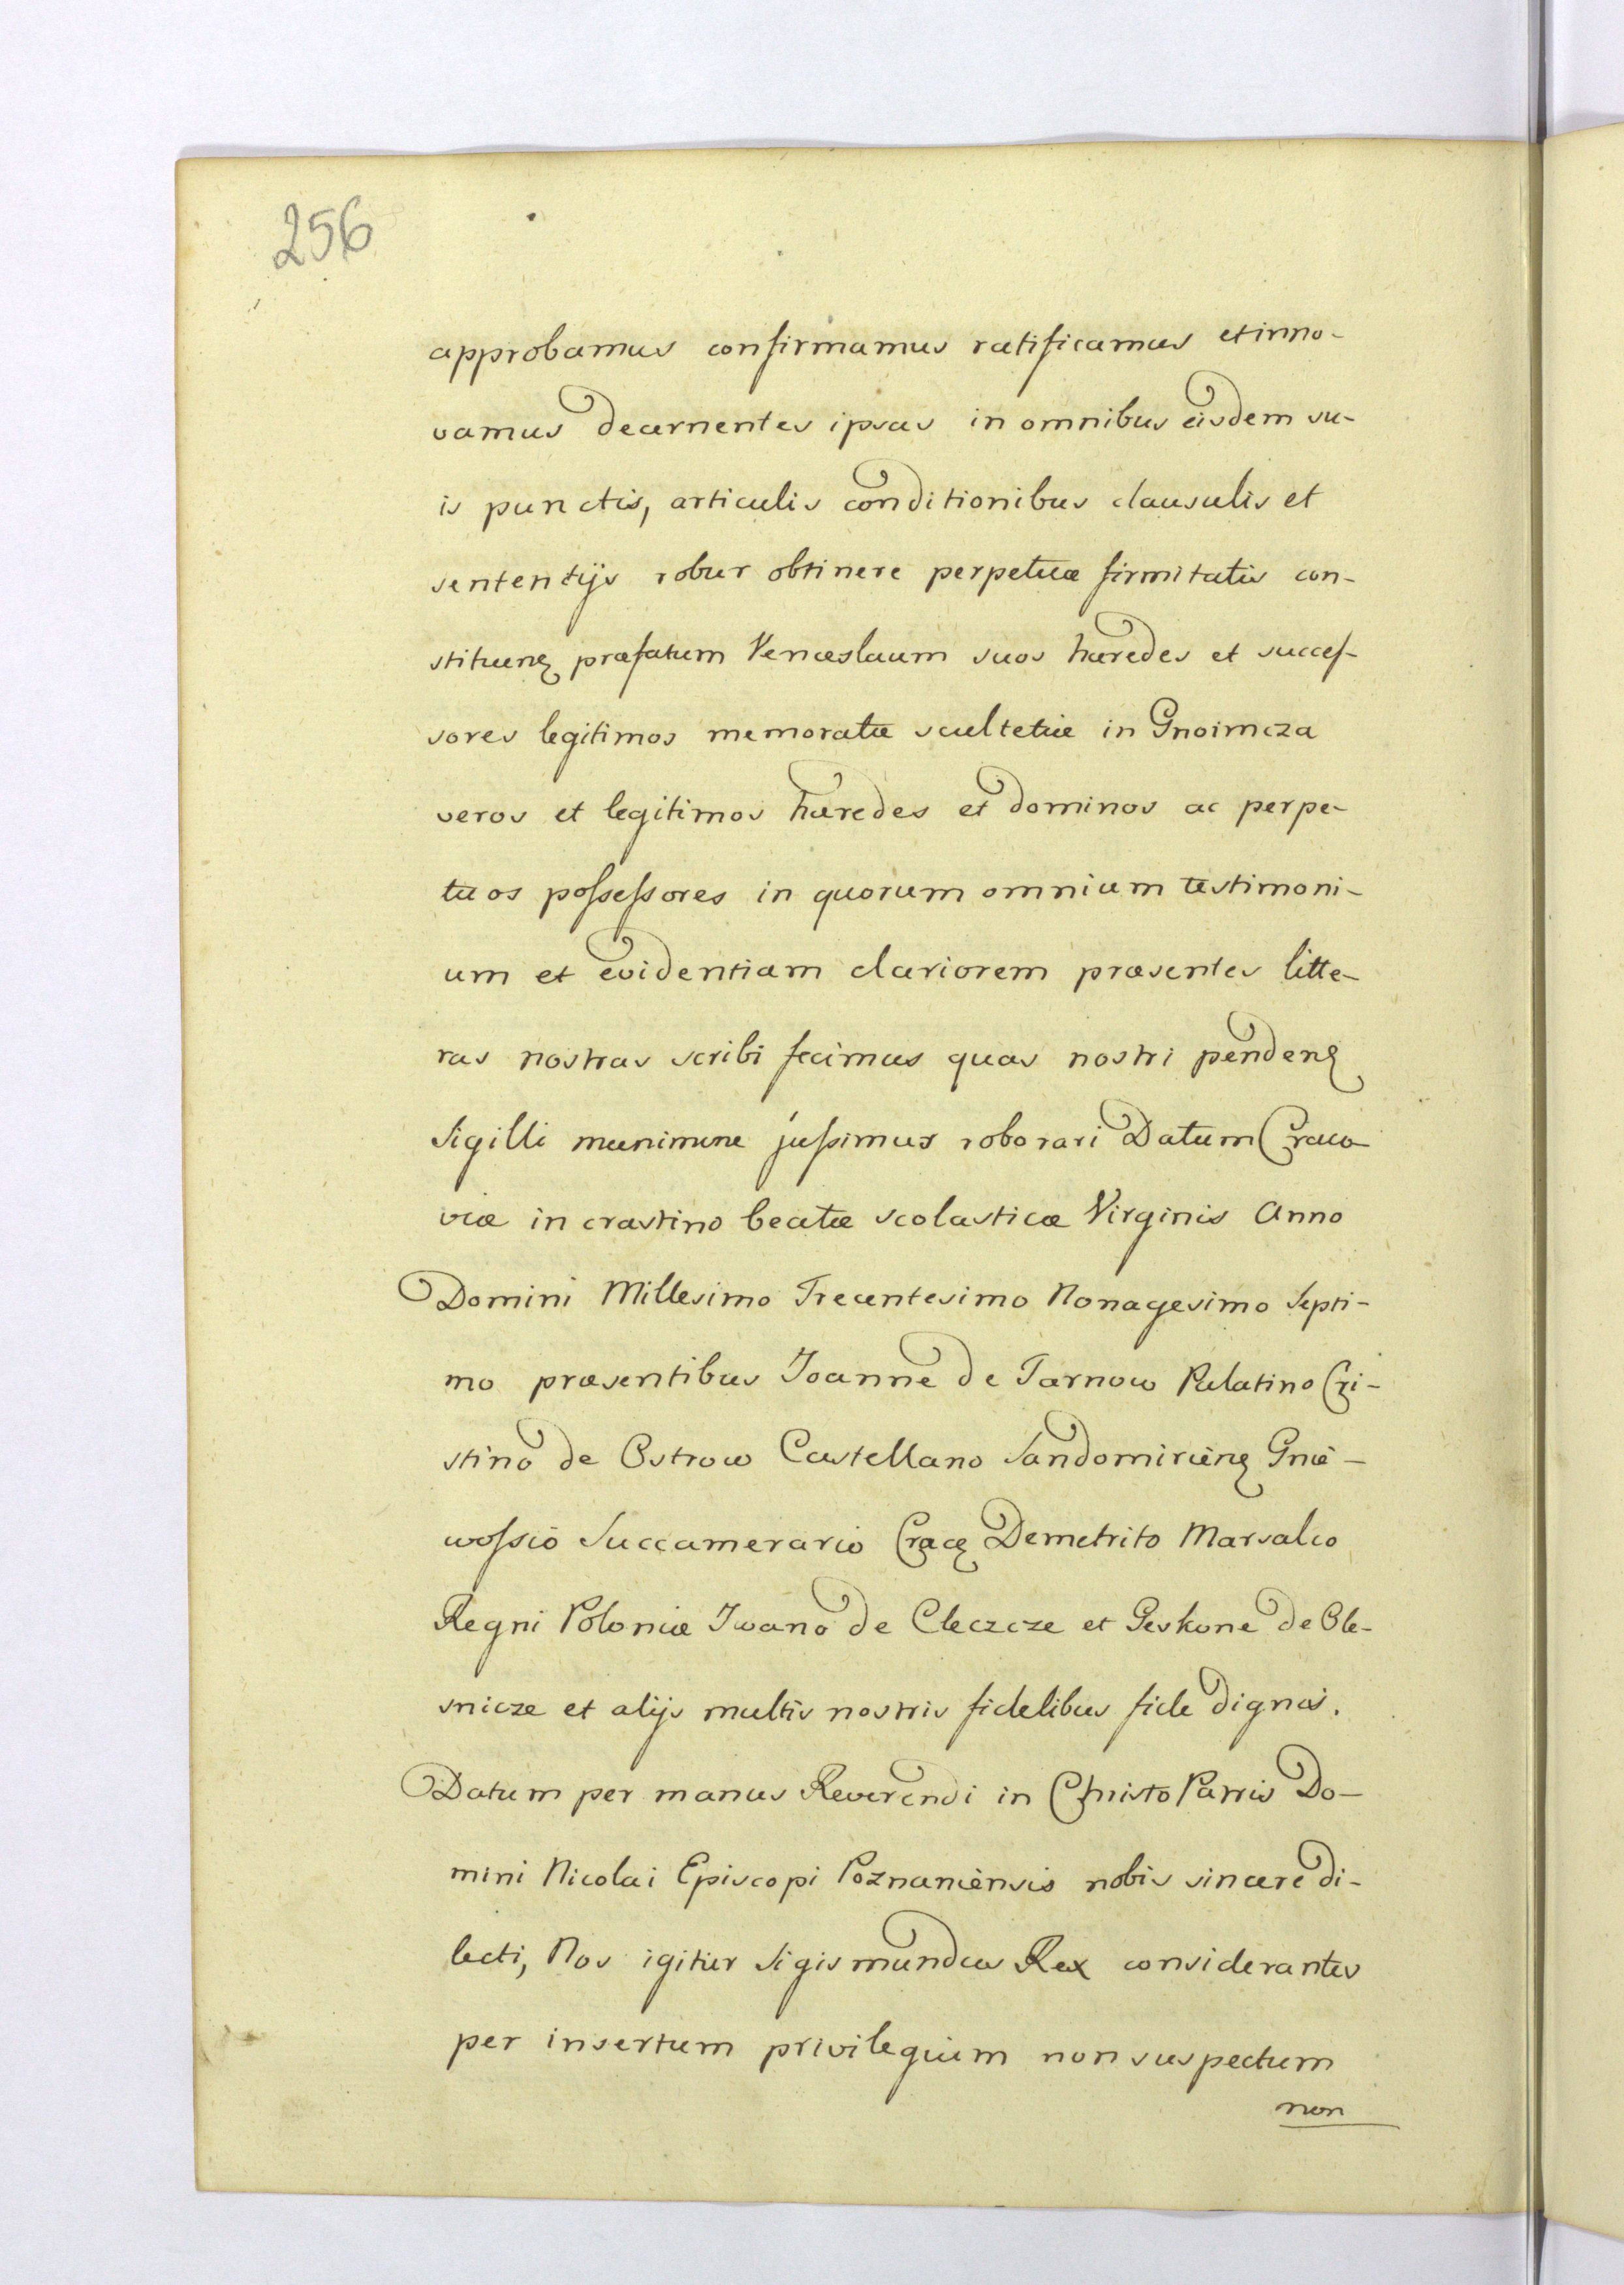 256
approbamus confirmamus ratificamus et inno-
vamus decernentes ipsas in omnibus eisdem su-
is punctis, articulis conditionibus clausulis et
sententijs robur obtinere perpetuæ firmitatis con-
stituenꝫ præfatum Venceslaum suos hæredes et succeſ-
sores legitimos memoratæ scultetiæ in Gnoimcza
veros et legitimos hæredes et dominos ac perpe-
tuos poſseſsores in quorum omnium testimoni-
um et evidentiam clariorem præsentes litte-
ras nostras scribi fecimus quas nostri pendenꝫ
Sigilli munimine juſsimus roborari Datum Craco
viæ in crastino beatæ scolasticæ Virginis Anno
Domini Millesimo Trecentesimo Nonagesimo Septi-
mo præsentibus Joanne de Tarnow Palatino Cri-
stino de Ostrow Castellano Sandomirienꝫ Gnie-
woſsio Succamerario Cracꝫ Demetrito Marsalco
Regni Poloniæ Iwano de Cleczcze et Peskone de Ole-
snicze et alijs multis nostris fidelibus fide dignis.
Datum per manus Reverendi in Christo Patris Do-
mini Nicolai Episcopi Poznaniensis nobis sincere di-
lecti, Nos igitur Sigismundus Rex considerantes
per insertum privilegium non suspectum
non